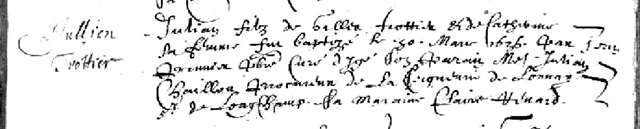 Jullien
Trottier
Julian filz de Gilles Trottier & de Catherine
sa femme fut baptizé le 30 Mars 1636 par Jean
pbre Curé d'Igé son parain Me Julian
Chaillou procureur de la seigneurie de Lonnay
& de Longchamp la maraine Claire